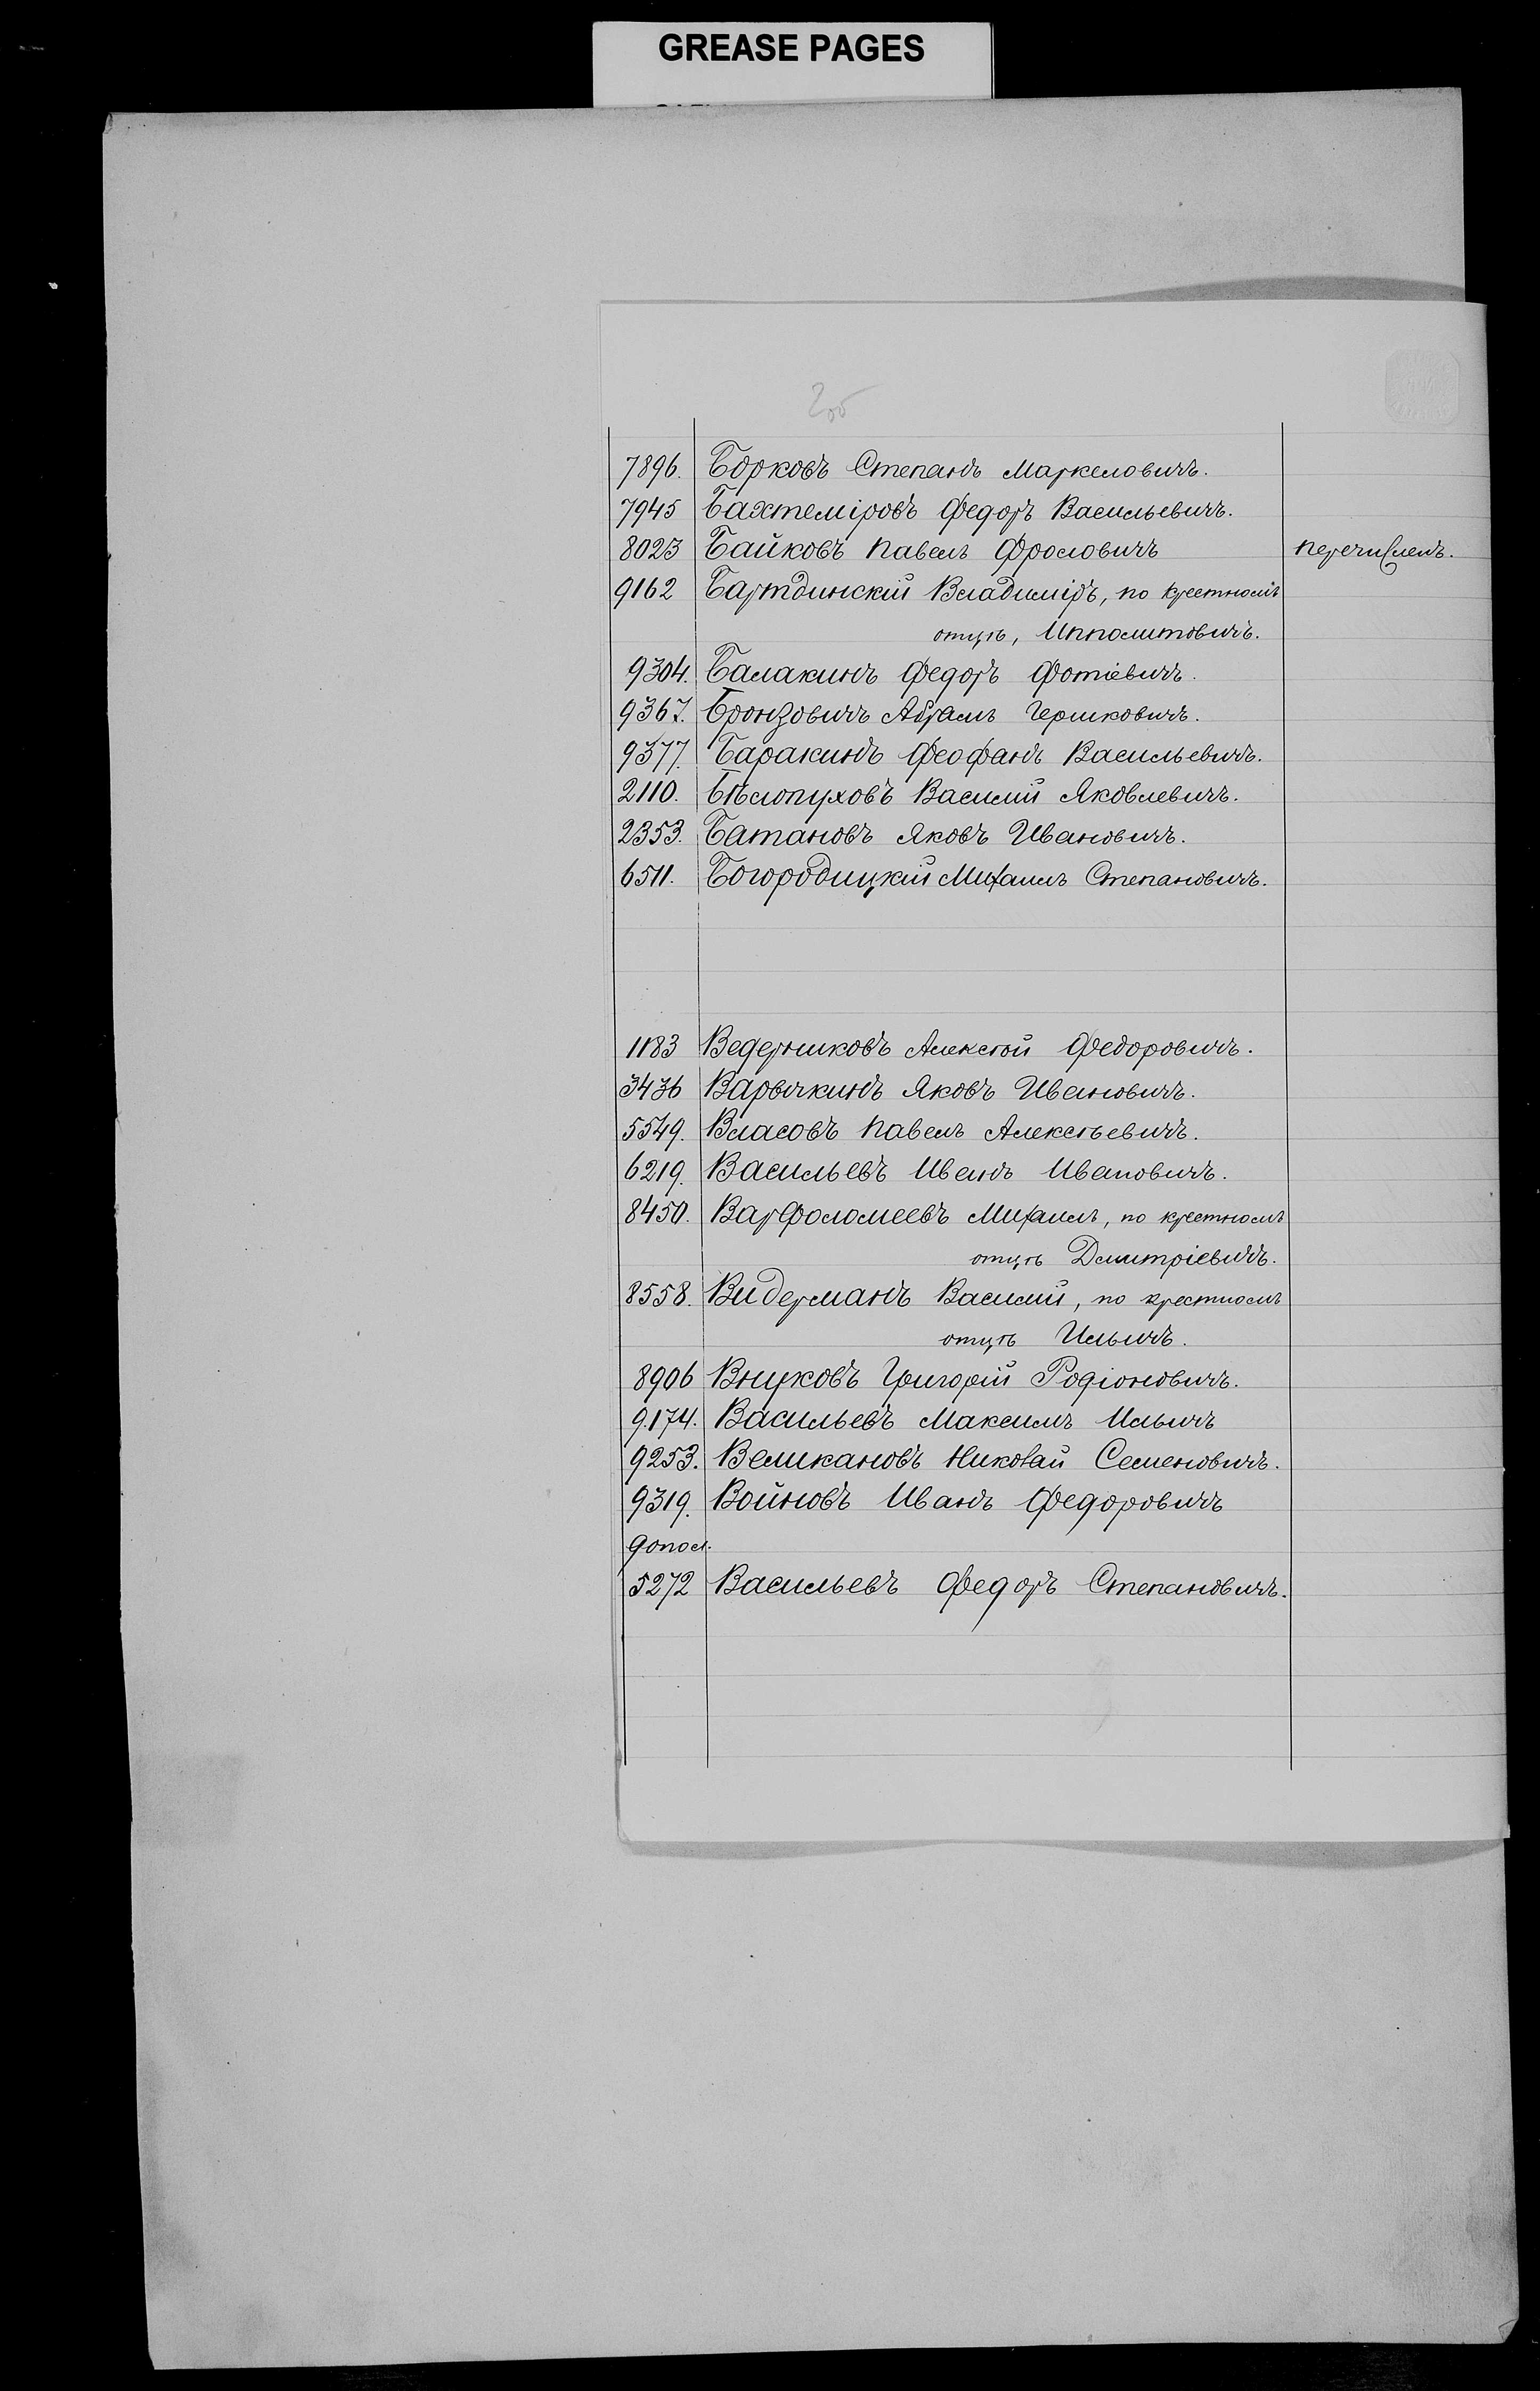 GREASE PAGES
2об
7896. Борковъ Степанъ Маркеловичъ.
7945 Бахтеміровъ Федоръ Васильевичъ.
8023 Байковъ Павелъ Фроловичъ перечисленъ.
9162 Бартдинскій Владиміръ, по крестномъ
отцѣ, Ипполитовичъ.
9304. Балакинъ Федоръ Фотіевичъ.
9367. Бронзовичъ Абрамъ Гершковичъ.
9377. Баракинъ Феофанъ Васильевичъ.
2110. Бѣлопуховъ Василій Яковлевичъ.
2353. Батановъ Яковъ Ивановичъ.
6511. Богородицкій Михаилъ Степановичъ.
1183 Ведерниковъ Алексѣй Федоровичъ.
3436 Варычкинъ Яковъ Ивановичъ.
5549. Власовъ Павелъ Алексѣевичъ.
6219. Васильевъ Иванъ Ивановичъ.
8450. Варфоломеевъ Михаилъ, по крестномъ
отцѣ Дмитріевичъ.
8558. Видерманъ Василій, по крестномъ
отцѣ Ильичъ.
8906 Внуковъ Григорій Родіоновичъ.
9174. Васильевъ Максимъ Ильичъ
9253. Великановъ Николай Семеновичъ.
9319. Войновъ Иванъ Федоровичъ
допол.
5272 Васильевъ Федоръ Степановичъ.